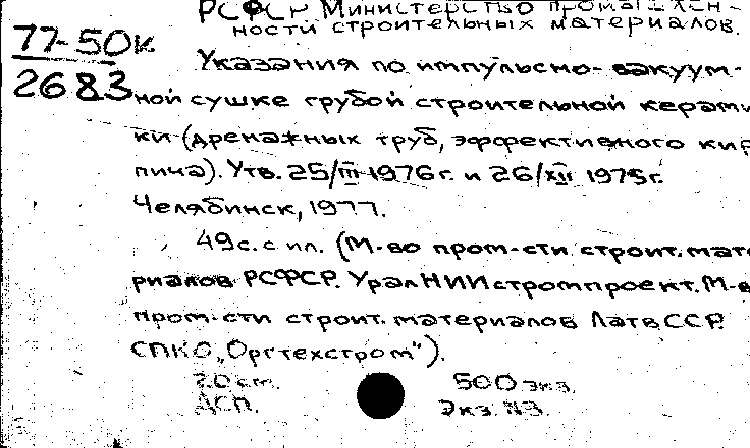 РСФСР Министерство промышлен-
ности строительных материалов.
77-50к
2683
Указания по импульсно-вакуум-
ной сушке грубой строительной керами
ки (дренажных труб, эффективного кир
пича). Утв. 25/III-1976г. и 26/XII 1975г.
Челябинск, 1977.
49с. с ил. (М-во пром-сти строит. мате
риалов РСФСР. УралНИИстромпроект. М-в
пром-сти строит. материалов Латв.ССР.
СПКО "Оргтехстром").
20 см. 500 экз.
ДСП. Экз. №3.